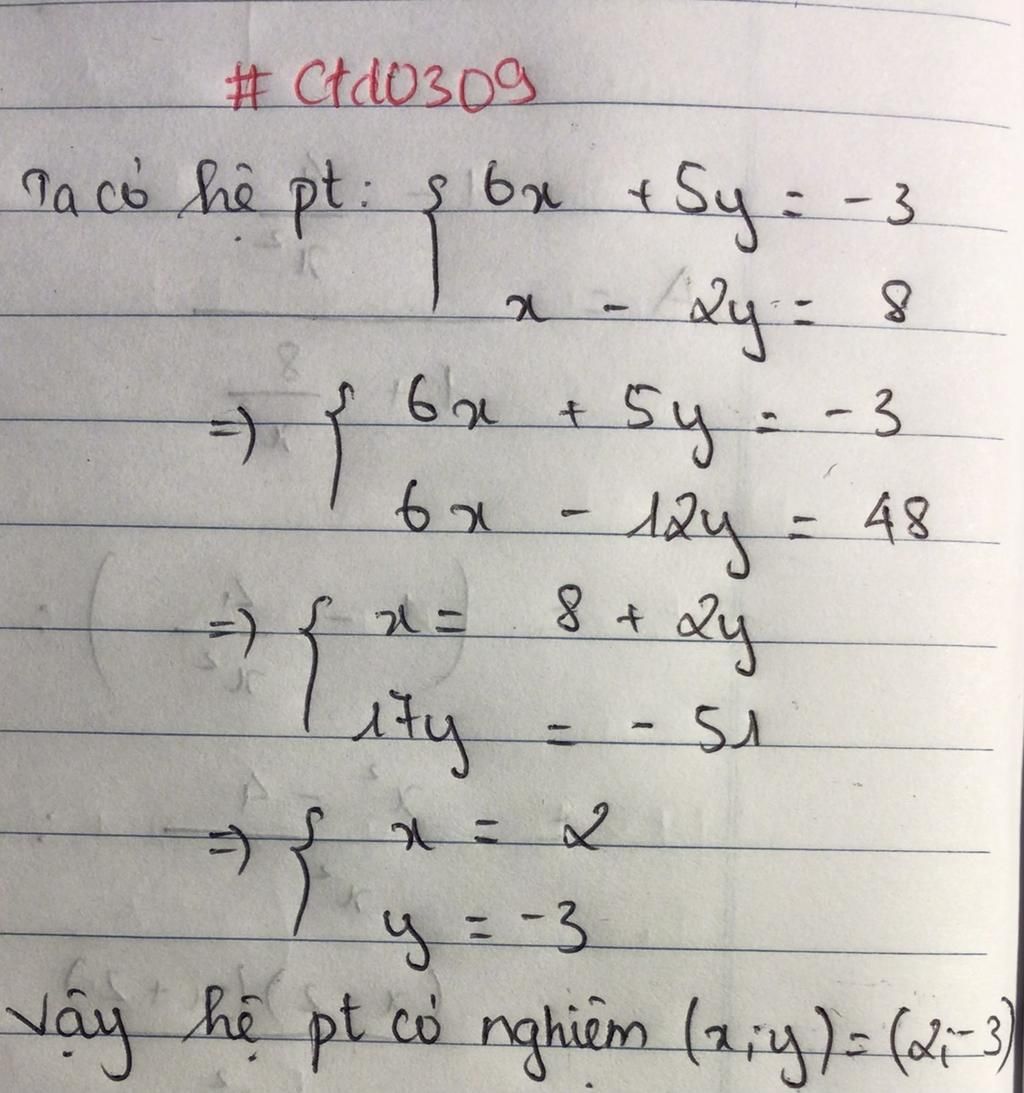 # Ctd0309
Ta có hệ pt: { 6x + 5y = -3
x - 2y = 8
=> { 6x + 5y = -3
6x - 12y = 48
=> { x = 8 + 2y
17y = - 51
=> { x = 2
y = -3
Vậy hệ pt có nghiệm (x;y) = (2;-3)